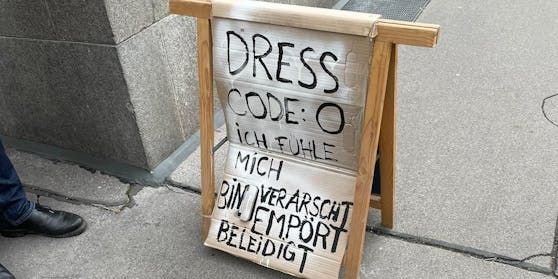 DRESS
CODE: O
iCH FÜHLE
MICH
BIN VERARSCHT
EMPÖRT
BELEIDIGT